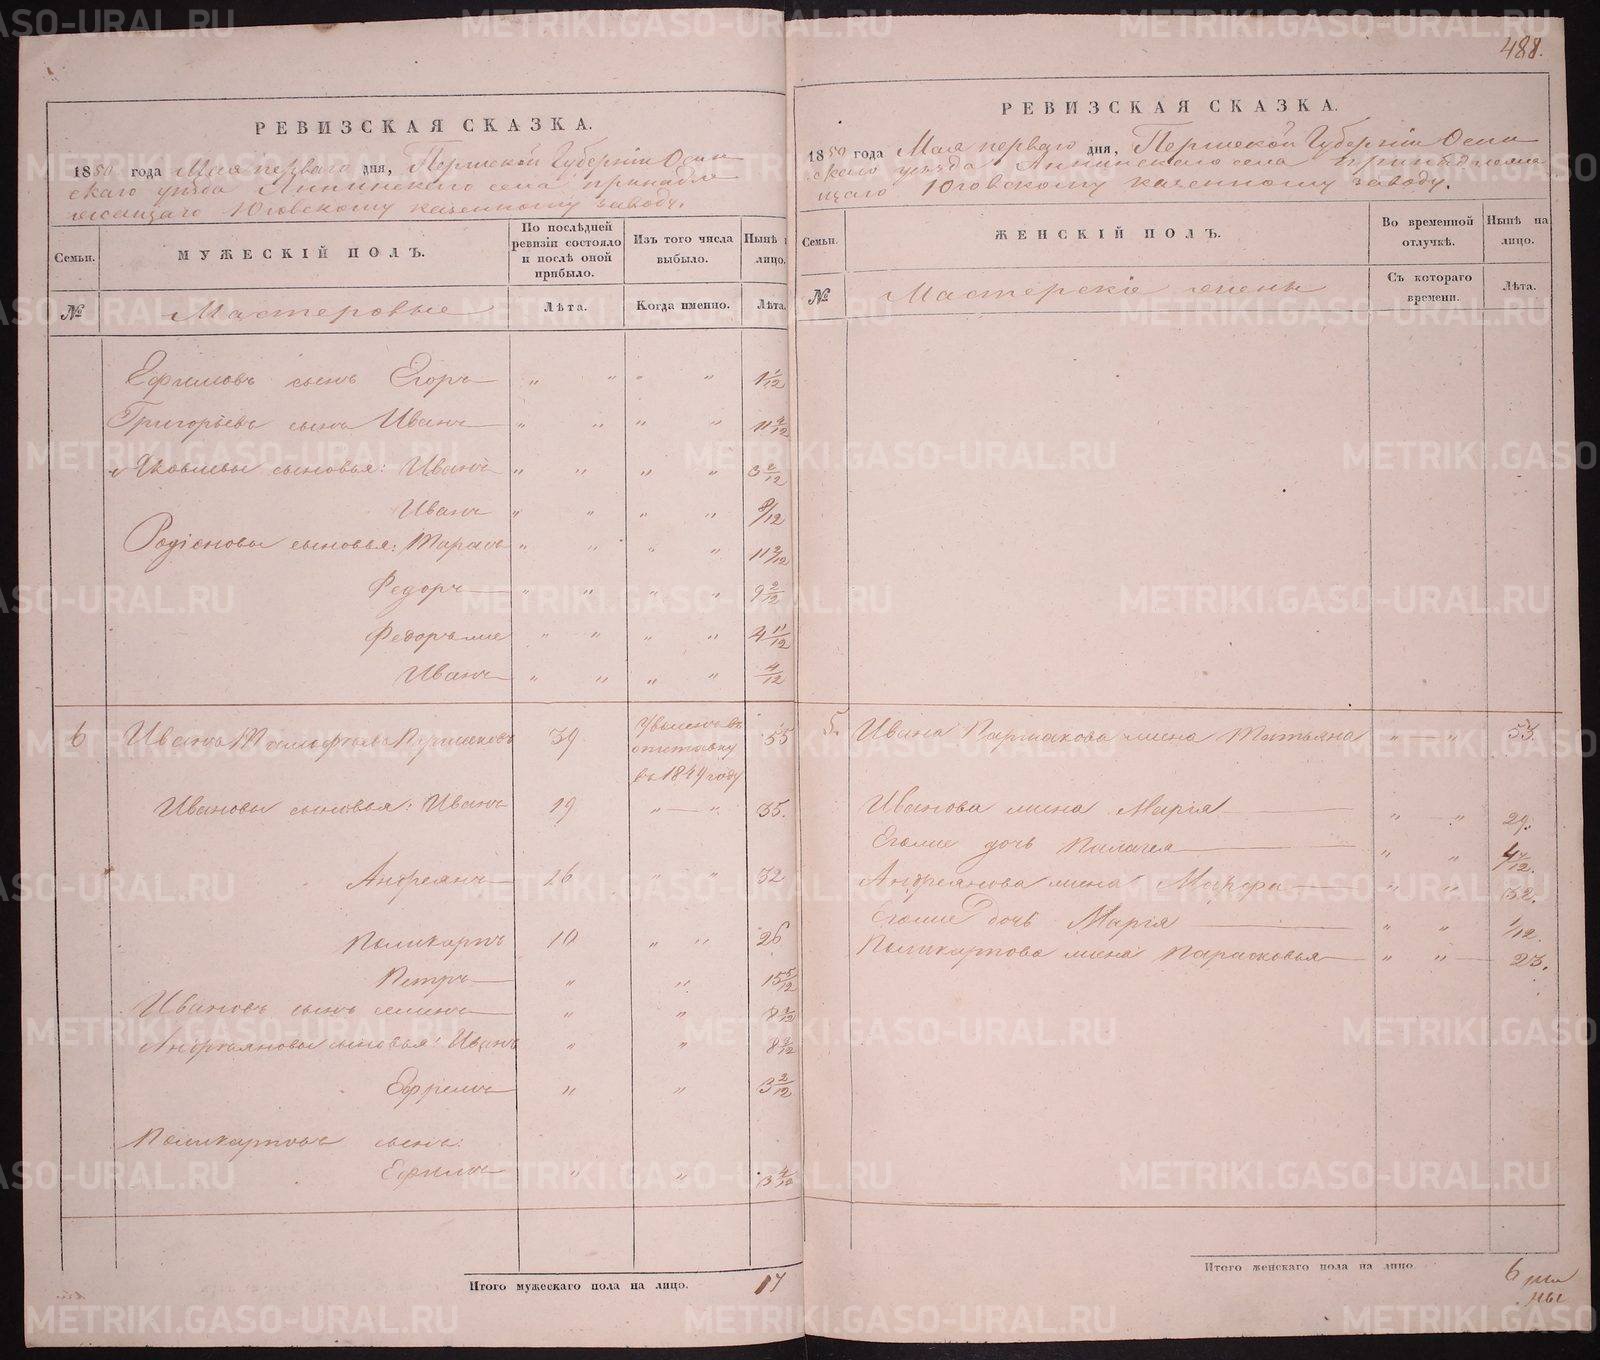 488.
РЕВИЗСКАЯ СКАЗКА.
1850 года Мая перваго дня, Пермской Губерніи Осин
скаго уѣзда Аннинскаго села принадле
жащаго Юговскому казенному заводу.
Семьи.
МУЖЕСКІЙ ПОЛЪ.
По послѣдней ревизіи состояло и послѣ оной прибыло.
Изъ того числа выбыло.
Нынѣ лицо.
№ Мастеровые Лѣта. Когда именно. Лѣта.
Ефимовъ сынъ Егоръ " " " " 1 1/12
Григорьевъ сынъ Иванъ " " " " 11 4/12
Яковлевы сыновья: Иванъ " " " " 3 2/12
Иванъ " " " " 8/12
Родіоновы сыновья: Тарасъ " " " " 11 2/12
Федоръ " " " " 9 2/12
Федоръ же " " " " 4 11/12
Иванъ " " " " 4/12
6 Иванъ 39 Уволенъ въ отставку въ 1849 году 55
Ивановы сыновья: Иванъ 19 " — " 35.
Андреянъ 16 " " 32
Поликарпъ 10 " " 26
Петръ " " 15 5/12
Ивановъ сынъ " " 8 2/12
Андреяновы сыновья: Иванъ " " 8 2/12
Ефремъ " " 3 2/12
Поликарповъ сынъ:
Ефимъ " " 3 4/12
Итого мужескаго пола на лицо. 17
РЕВИЗСКАЯ СКАЗКА.
1850 года Мая перваго дня, Пермской Губерніи Осин
скаго уѣзда Аннинскаго села принадлежа
щаго Юговскому казенному заводу.
Семьи.
ЖЕНСКІЙ ПОЛЪ.
Во временной отлучкѣ.
Нынѣ на лицо.
№ Мастерскіе жены Съ котораго времени. Лѣта.
5. Ивана жена Татьяна " — " 53.
Иванова жена Марія " — " 29.
Егоже дочь Пилагея " " 4 7/12.
Андреянова жена Марфа " " 32.
Егоже дочь Марія " " 1/12.
Поликарпова жена Парасковья " " 23.
Итого женскаго пола на лицо 6